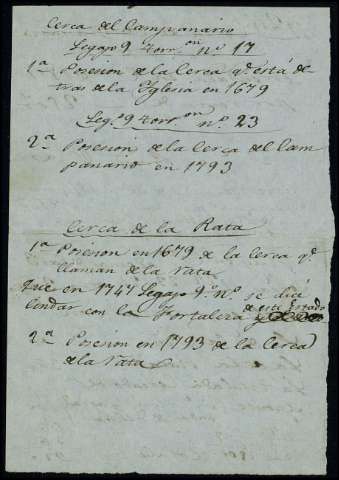 Cerca del Campanario
Legajo 9 Torr.on nº 17
1ª Posesion de la Cerca q.e está de-
tras de la Yglesia en 1679
Leg.o 9 Torr.on nº 23
2ª Posesion de la Cerca del Cam-
panario en 1793
Cerca de la Rata
1ª Posesion en 1679 de la Cerca q.e
llaman de la rata
Que en 1747 Legajo 9º nº se dice
lindar con la Fortaleza de este Estado
2ª Posesion en 1793 de la Cerca
de la rata